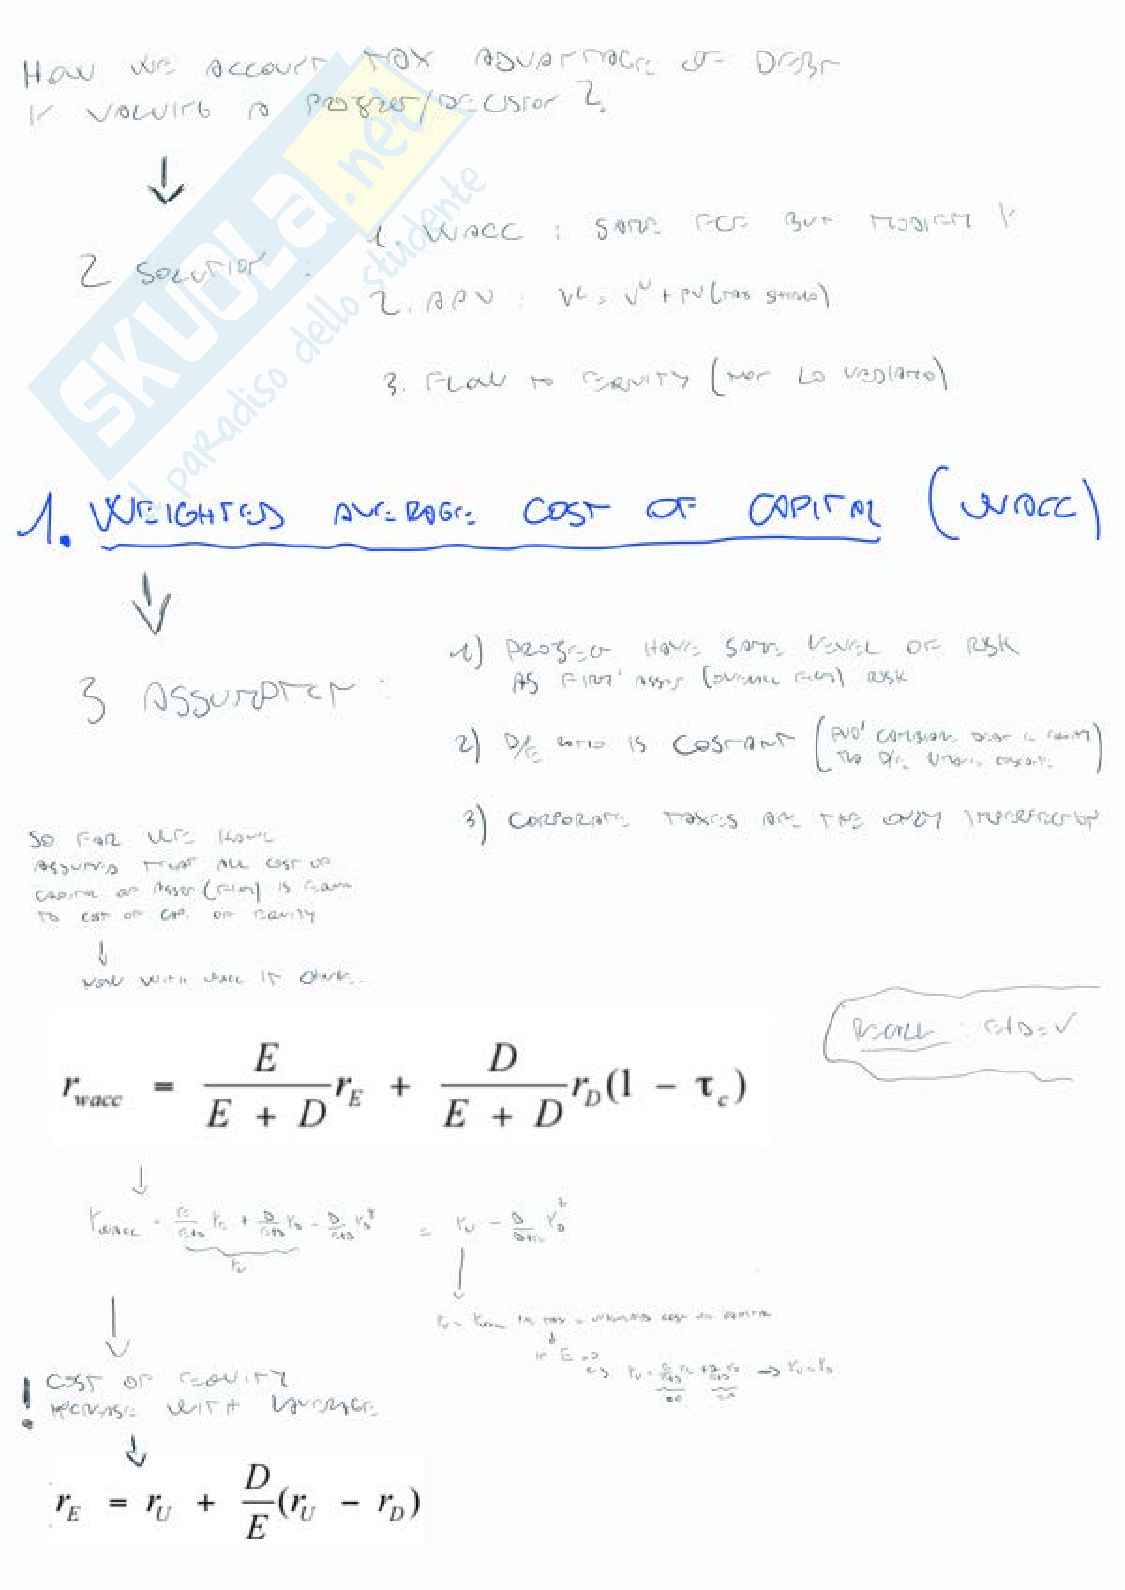 HOW WE ACCOUNT TAX ADVANTAGE OF DEBT
IN VALUING A PROJECT/DECISION ?
↓
2 SOLUTION :
1. WACC : SAME FCF BUT MODIFY r
2. APV : V^L = V^U + PV (TAX SHIELD)
3. FLOW TO EQUITY (NON LO VEDIAMO)
SKUOLA.net
il paradiso dello studente
1. WEIGHTED AVERAGE COST OF CAPITAL (WACC)
↓
3 ASSUMPTION :
1) PROJECT HAVE SAME LEVEL OF RISK
AS FIRM' ASSET (OVERALL FIRM) RISK
2) D/E RATIO IS COSTANT (PUO' CAMBIARE DEBT E EQUITY
D/E COSTANTE)
3) CORPORATE TAXES ARE THE ONLY IMPERFECTION
SO FAR WE HAVE
ASSUMED THAT ALL COST OF
CAPITAL OF ASSET (FIRM) IS EQUAL
TO COST OF CAP. OF EQUITY
↓
NOW WITH WACC IT CHANGE..
RECALL : E+D=V
r_wacc = E/(E + D) r_E + D/(E + D) r_D(1 − τ_c)
↓
r_WACC = E/(E+D) r_E + D/(E+D) r_D − D/(E+D) r_D τ = r_U − D/(D+E) r_D τ
r_U
↓
IN E
r_U = E/(E+D) r_E + D/(E+D) r_D → r_U = r_D
↓
! COST OF EQUITY
INCREASE WITH LEVERAGE
↓
r_E = r_U + D/E (r_U − r_D)